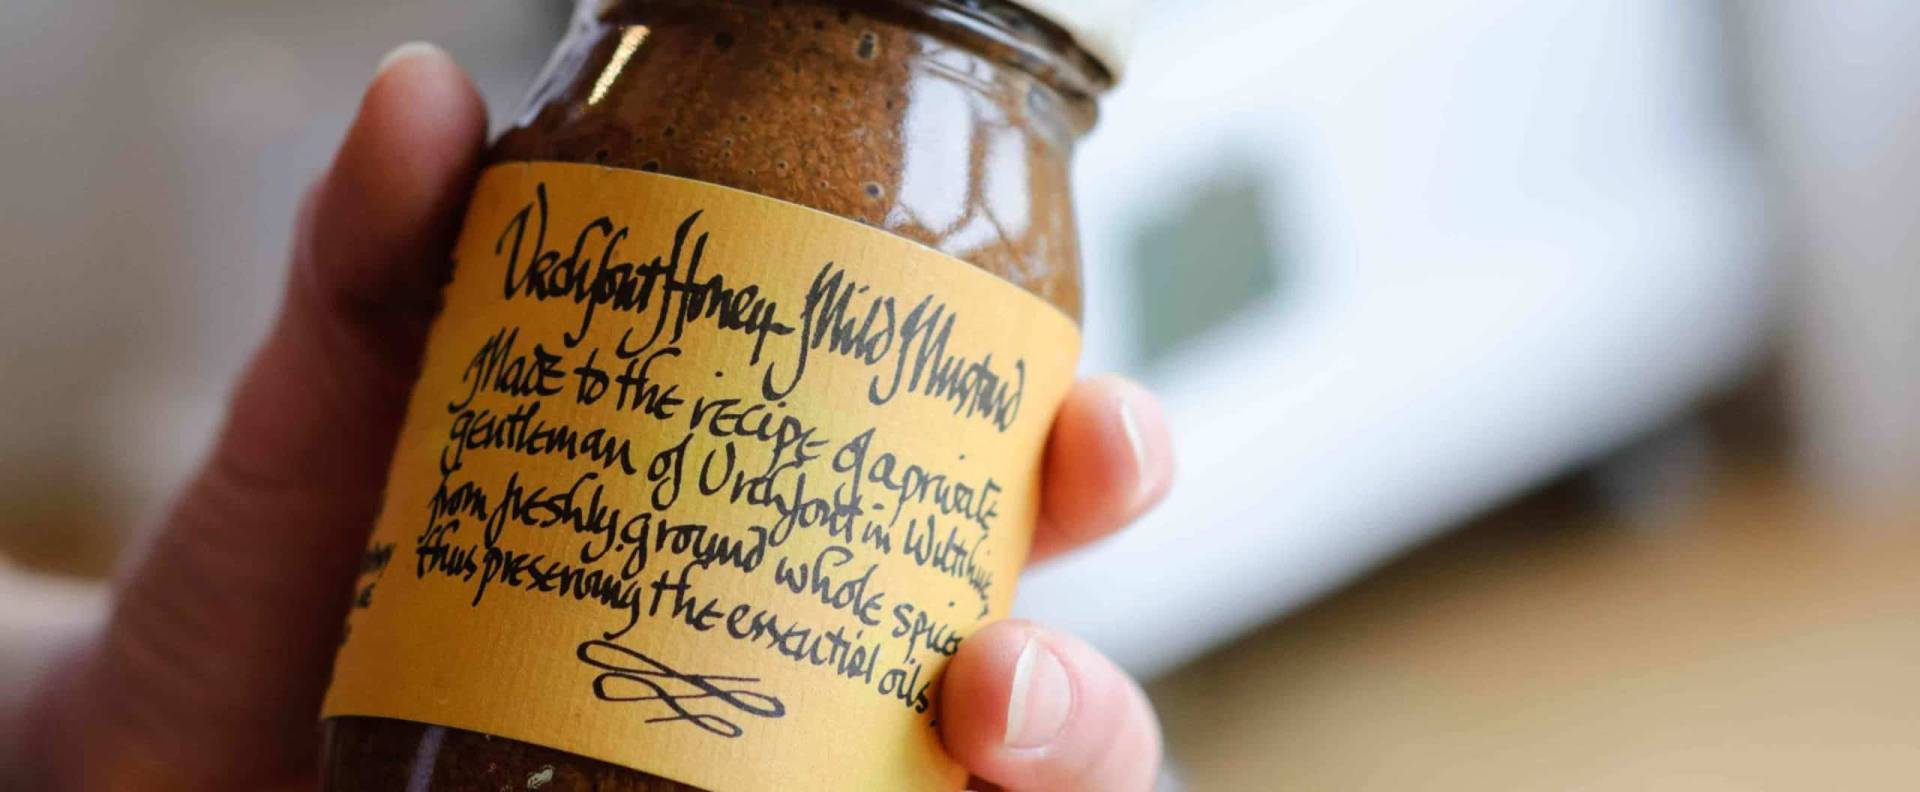 Urchfont Honey-Mild Mustard
Made to the recipe of a private
gentleman of Urchfont in Wiltshire,
from freshly ground whole spices
thus preserving the essential oils.